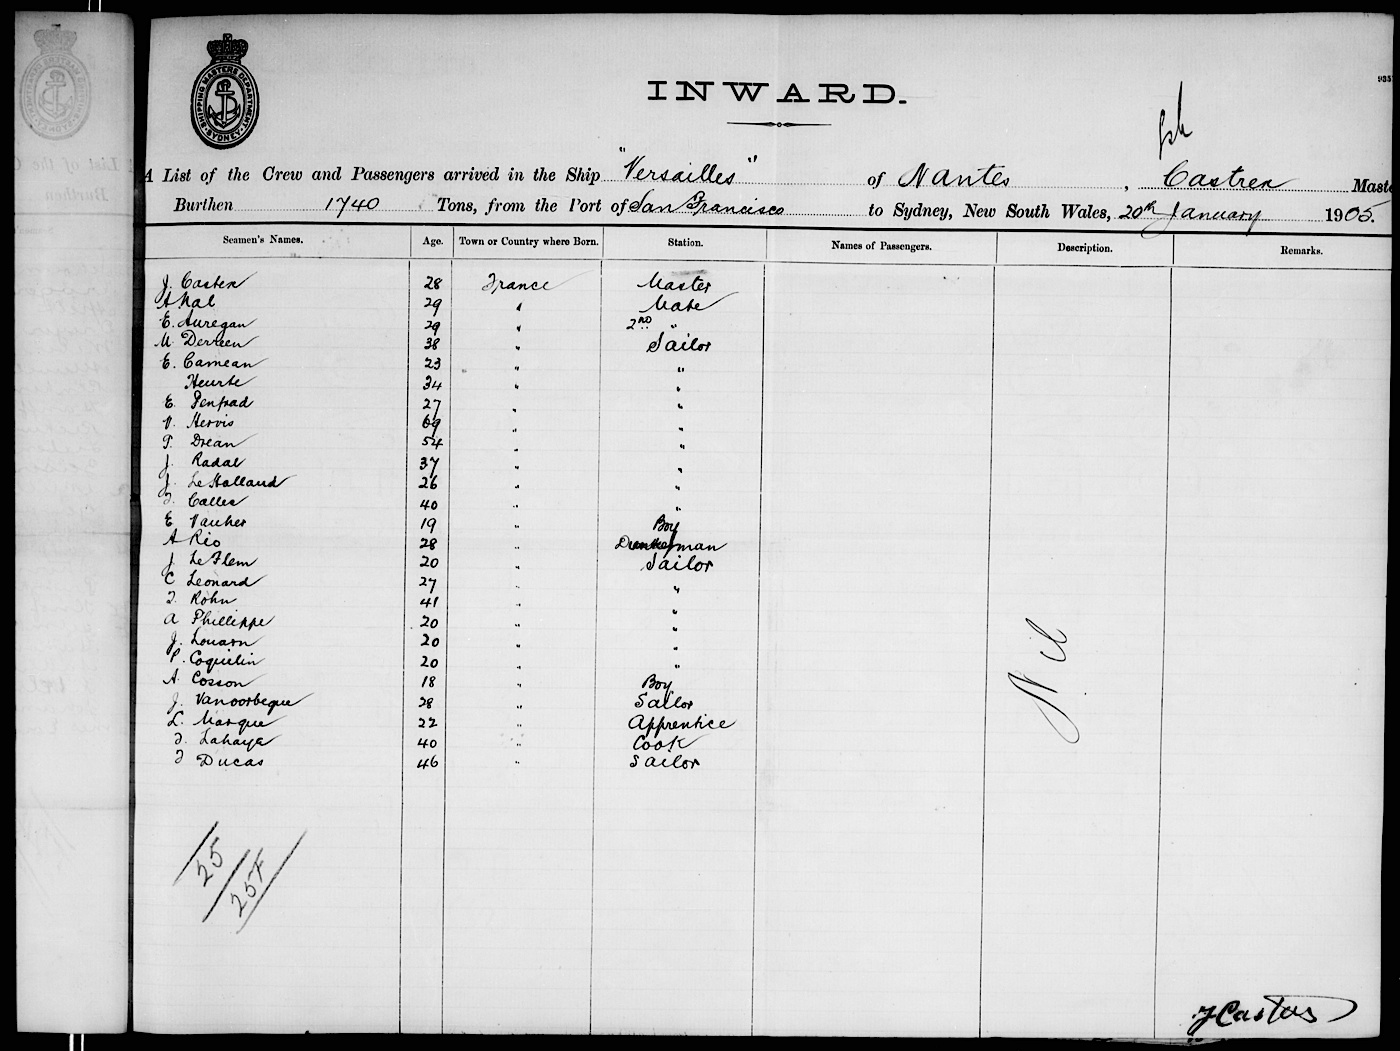 SHIPPING MASTERS DEPARTMENT SYDNEY
INWARD.
A List of the Crew and Passengers arrived in the Ship "Versailles" of Nantes, Castrex Maste
Burthen 1740 Tons, from the Port of San Francisco to Sydney, New South Wales, 20th January 1905.
Seamen's Names. Age. Town or Country where Born. Station. Names of Passengers. Description. Remarks.
J. Castex 28 France Master
A Nal 29 " Mate
E. Auregan 29 " 2ND "
M Derreen 38 " Sailor
E. Camean 23 " "
Heurte 34 " "
E. Penfrad 27 " "
V. Hervis 69 " "
T. Drean 54 " "
J. Radal 37 " "
J. Le Halland 26 " "
F. Calles 40 " "
E Vauher 19 " Boy
A Rio 28 " Dunkeyman
J Le Flem 20 " Sailor
C Leonard 27 " "
F. Rohn 41 " "
A Phillippe 20 " "
J. Louarn 20 " "
P. Coquelin 20 " "
A. Cosson 18 " Boy
J. Vanoorbeque 28 " Sailor
L. Marque 22 " Apprentice
F. Lahaye 40 " Cook
F Ducas 46 " Sailor
Nil
25
25F
J Castex